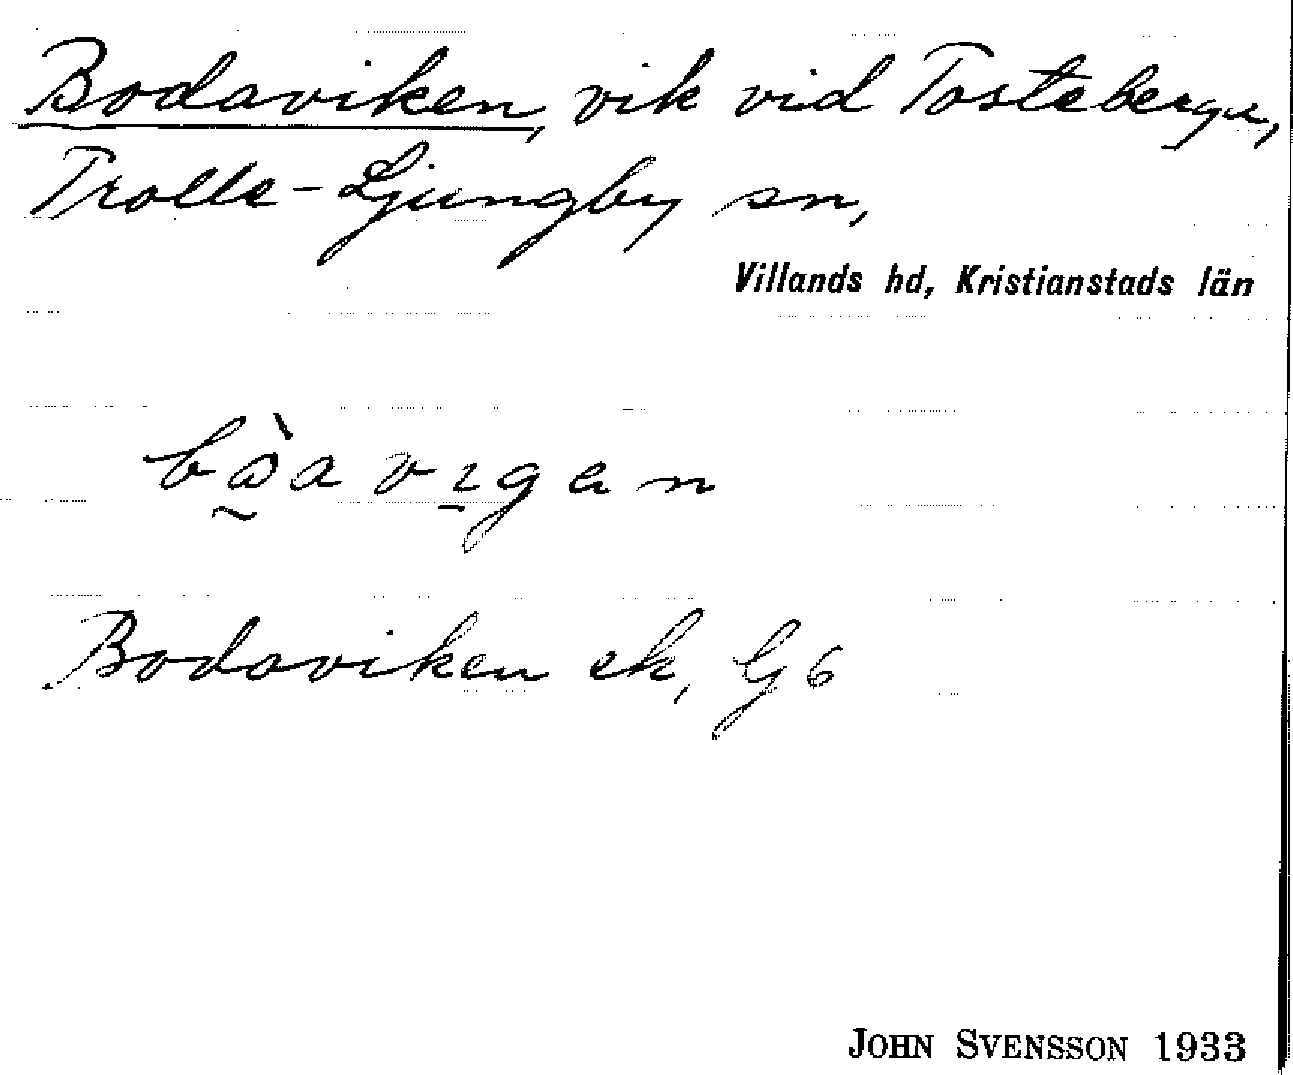 Bodaviken, vik vid Tosteberga,
Trolle-Ljungby sn,
Villands hd, Kristianstads län
Bodaviken ek, G6
JOHN SVENSSON 1933